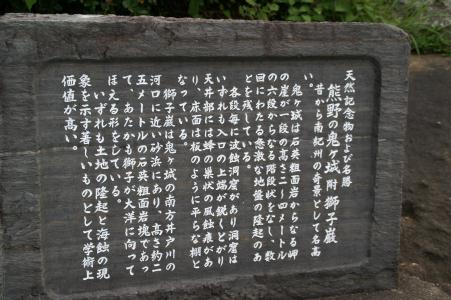 天然記念物および名勝
熊野の鬼ヶ城 附 獅子巖
昔から南紀州の奇景として名高
い。
鬼ヶ城は石英粗面岩からなる岬
の崖が一段の高さ二〜四メートル
の六段からなる階段状をなし、数
回にわたる急激な地盤の隆起のあ
とを残している。
各段毎に波蝕洞窟があり洞窟は
いずれも入口の上端が鋭くとがり
天井部には蜂の巣状の風蝕痕があ
り、床面は板のように平らな棚と
なっている。
獅子巖は鬼ヶ城の南方井戸川の
河口に近い砂浜にあり、高さ約二
五メートルの石英粗面岩塊であっ
て、あたかも獅子が大洋に向って
ほえる形をしている。
いずれも土地の隆起と海蝕の現
象を示す著しいものとして学術上
価値が高い。